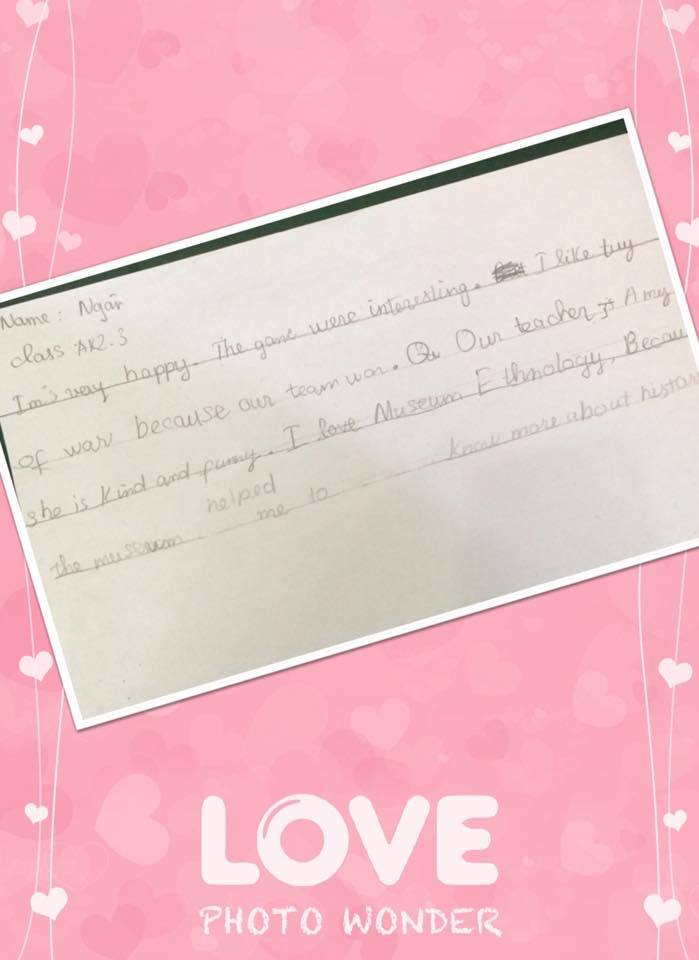 Name: Ngân
class: AK2.3
I'm's very happy. The game were interesting. I like tuy
of war because our team won. Our teacher is Amy
she is kind and funny. I love Museum Ethnology, Becau
the musseum helped me to know more about histor
LOVE
PHOTO WONDER